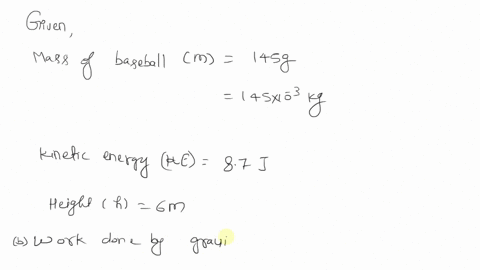 Given,
Mass of baseball (m) = 145g
= 145x10⁻³ kg
kinetic energy (KE) = 8.7 J
Height (h) = 6m
(b) Work done by gravi